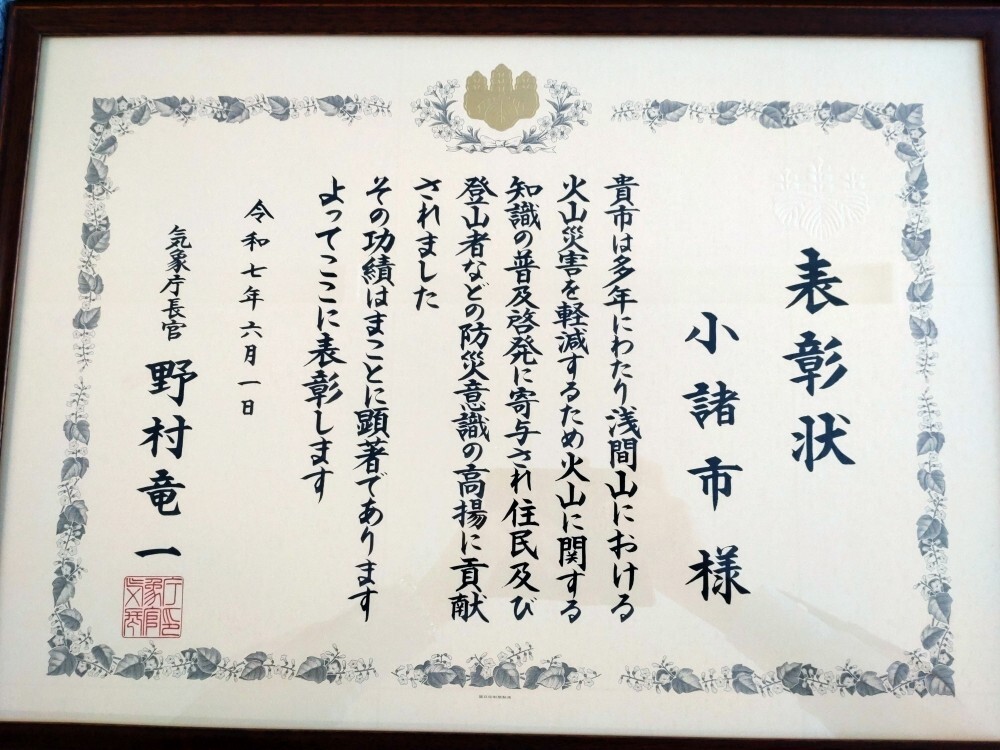 表彰状
小諸市様
貴市は多年にわたり浅間山における
火山災害を軽減するため火山に関する
知識の普及啓発に寄与され住民及び
登山者などの防災意識の高揚に貢献
されました
その功績はまことに顕著であります
よってここに表彰します
令和七年六月一日
気象庁長官
野村竜一